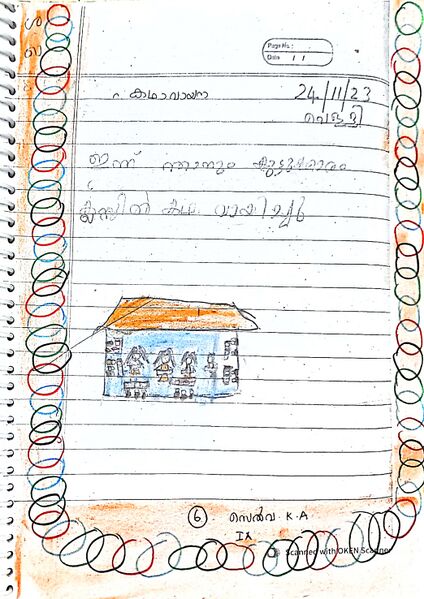 Page No.:
Date / /
കഥാവായന
24/11/23
വെള്ളി
ഇന്ന് ഞാനും കൂട്ടുകാരും
ക്ലാസിൽ കഥ വായിച്ചു
6 സെൽവ K.A
Scanned with OKEN Scanner